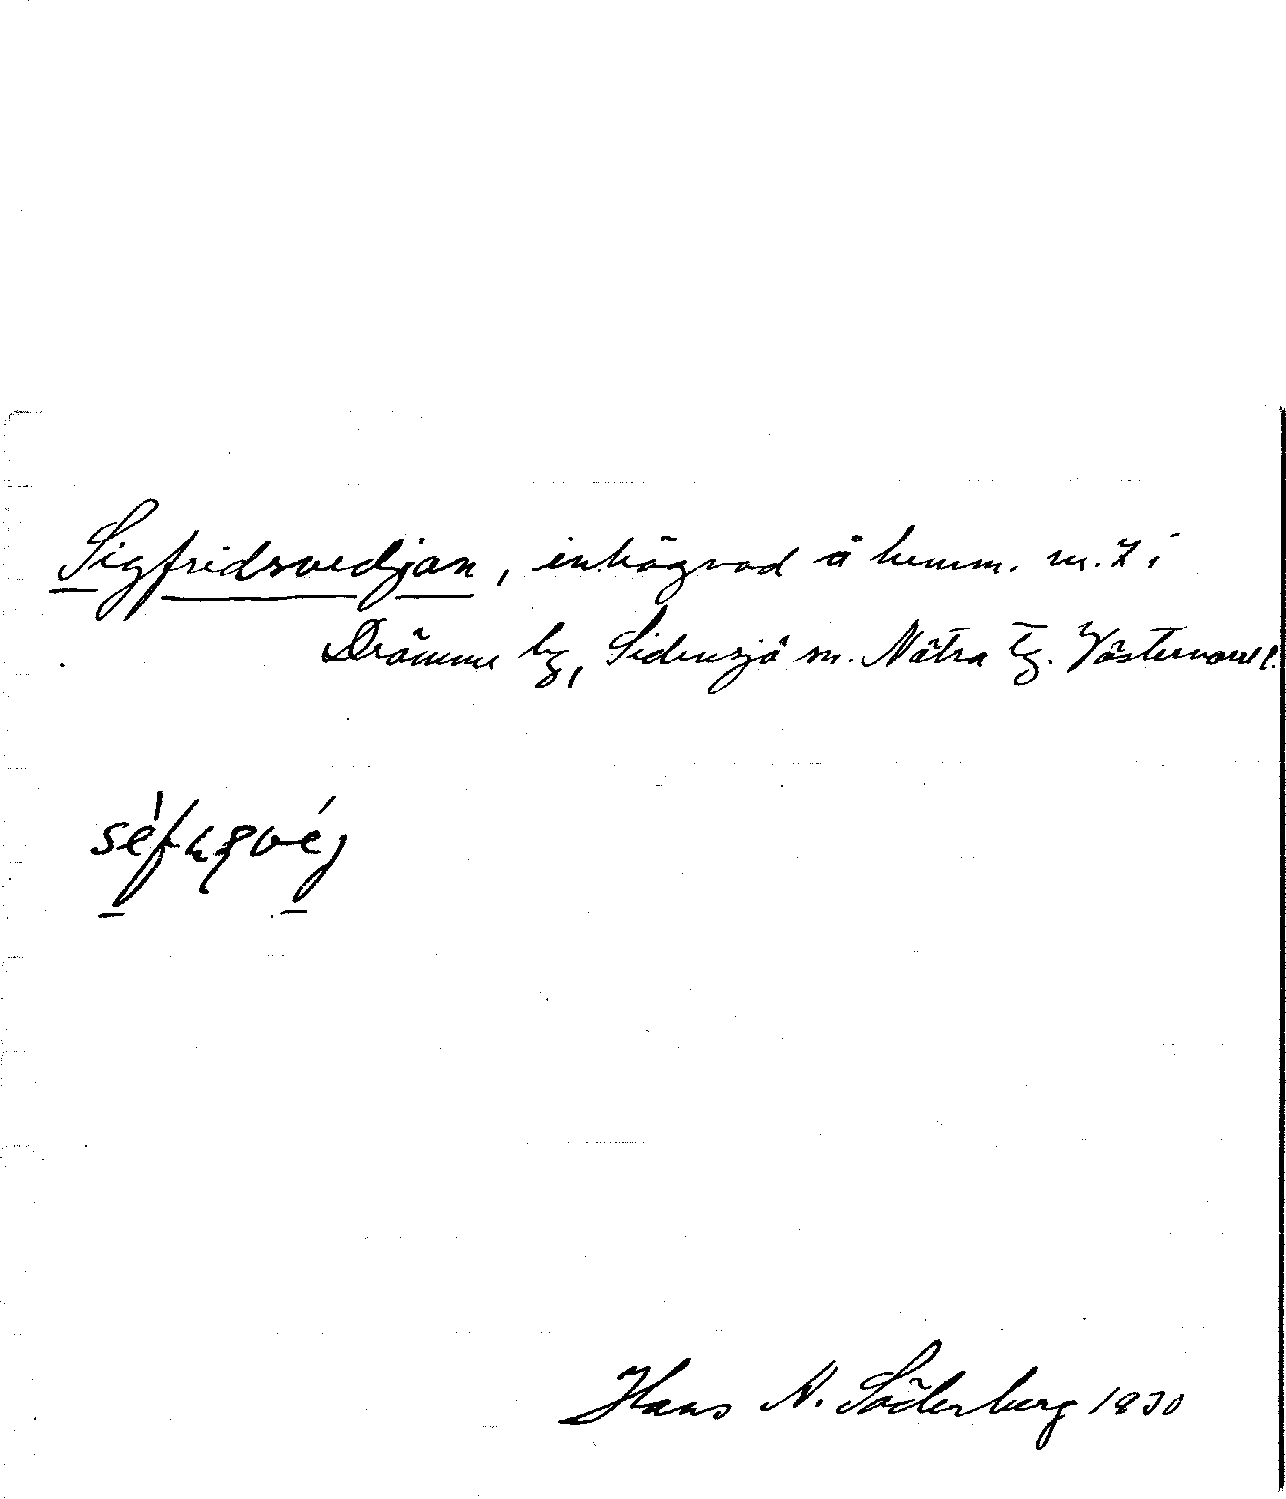 Sigfridsvedjan, inhägnad å hemm. nr. 7 i
Drömme by, Sidensjö sn. Nätra tg. Västernorrl l.
Hans N. Söderberg 1930